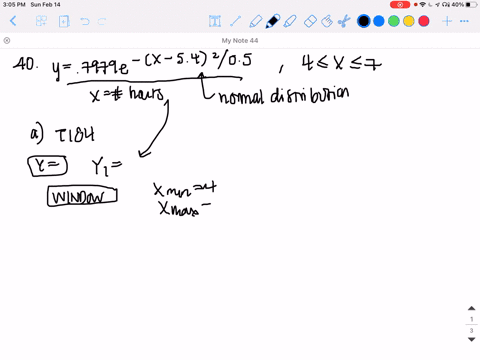 3:05 PM Sun Feb 14
40%
My Note 44
40. y = .7979e^-(x-5.4)²/0.5 , 4 ≤ x ≤ 7
x = # hours
normal distribution
a) TI84
Y= Y₁ =
WINDOW
Xmin = 4
Xmax =
1
3